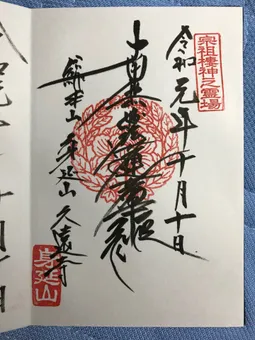 宗祖棲神之霊場
令和元年十月十日
南無妙法蓮華経
総本山 身延山 久遠寺
身延山